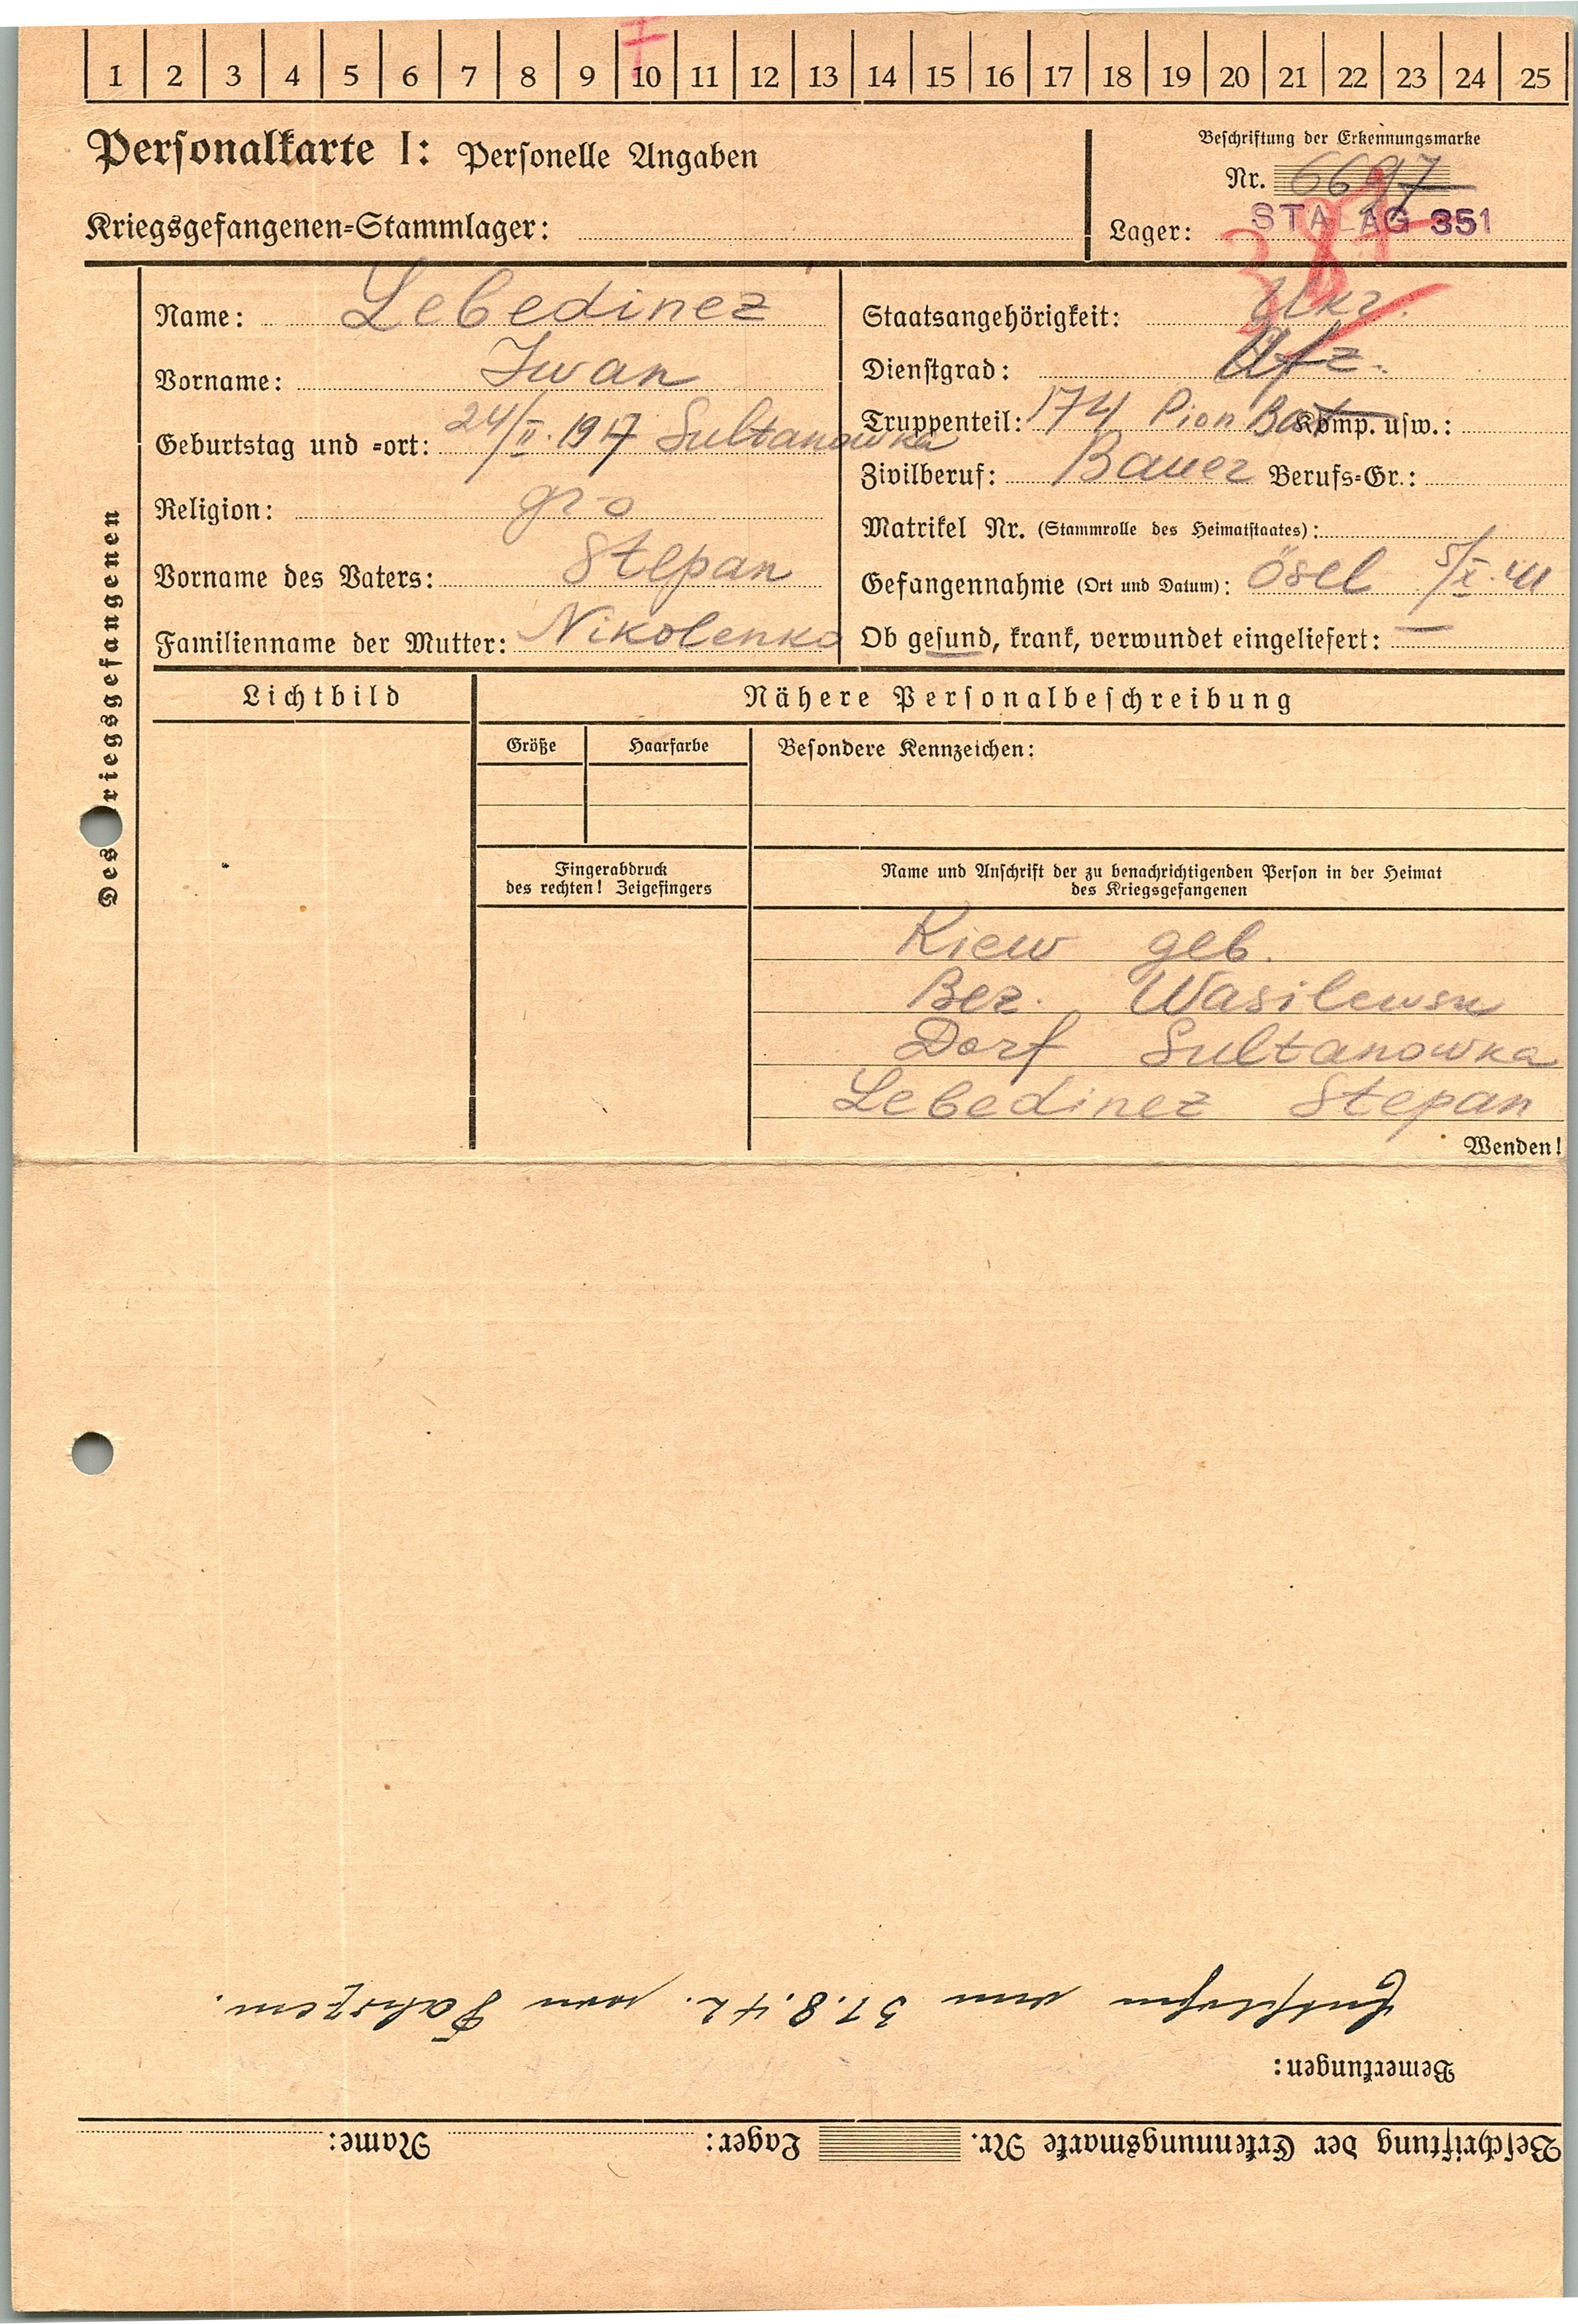 1 2 3 4 5 6 7 8 9 10 11 12 13 14 15 16 17 18 19 20 21 22 23 24 25
Personalkarte I: Personelle Angaben
Kriegsgefangenen-Stammlager:
Beschriftung der Erkennungsmarke
Nr. 6697
Lager: STALAG 351
Des Kriegsgefangenen
Name: Lebedinez
Vorname: Iwan
Geburtstag und -ort: 24/II. 1917 Sultanowka
Religion: gr-o
Vorname des Vaters: Stepan
Familienname der Mutter: Nikolenko
Staatsangehörigkeit: Ukr.
Dienstgrad: Ufz.
Truppenteil: 174 Pion Bat Komp. usw.:
Zivilberuf: Bauer Berufs-Gr.:
Matrikel Nr. (Stammrolle des Heimatstaates):
Gefangennahme (Ort und Datum): Ösel 5/X. 41
Ob gesund, krank, verwundet eingeliefert: —
Lichtbild
Nähere Personalbeschreibung
Größe
Haarfarbe
Besondere Kennzeichen:
Fingerabdruck
des rechten! Zeigefingers
Name und Anschrift der zu benachrichtigenden Person in der Heimat
des Kriegsgefangenen
Kiew geb.
Bez. Wasilewsk
Dorf Sultanowka
Lebedinez Stepan
Wenden!
Beschriftung der Erkennungsmarke Nr. Lager: Name:
Bemerkungen:
31.8.42. von